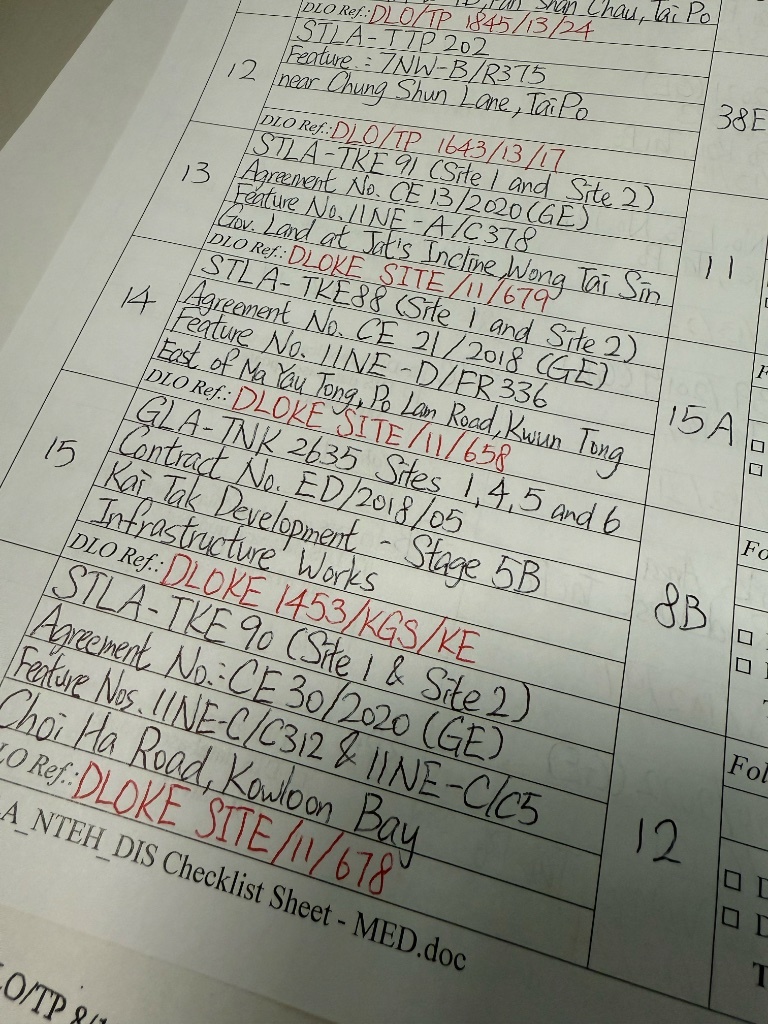 Shan Chau, Tai Po
DLO Ref.: DLO/TP 1845/13/24
12
STLA-TTP 202
Feature.: 7NW-B/R375
near Chung Shun Lane, Tai Po
38E
DLO Ref.: DLO/TP 1643/13/17
13
STLA-TKE 91 (Site 1 and Site 2)
Agreement No. CE 13/2020 (GE)
Feature No. 11NE-A/C378
Gov. Land at Jat's Incline, Wong Tai Sin
11
DLO Ref.: DLOKE SITE/11/679
14
STLA-TKE88 (Site 1 and Site 2)
Agreement No. CE 21/2018 (GE)
Feature No. 11NE-D/FR336
East of Ma Yau Tong, Po Lam Road, Kwun Tong
15A
DLO Ref.: DLOKE SITE/11/658
15
GLA-TNK 2635 Sites 1,4,5 and 6
Contract No. ED/2018/05
Kai Tak Development - Stage 5B
Infrastructure Works
8B
Fo
DLO Ref.: DLOKE 1453/KGS/KE
STLA-TKE 90 (Site 1 & Site 2)
Agreement No.: CE 30/2020 (GE)
Feature Nos. 11NE-C/C312 & 11NE-C/C5
Choi Ha Road, Kowloon Bay
12
Fol
LO Ref.: DLOKE SITE/11/678
A_NTEH_DIS Checklist Sheet - MED.doc
LO/TP 8/